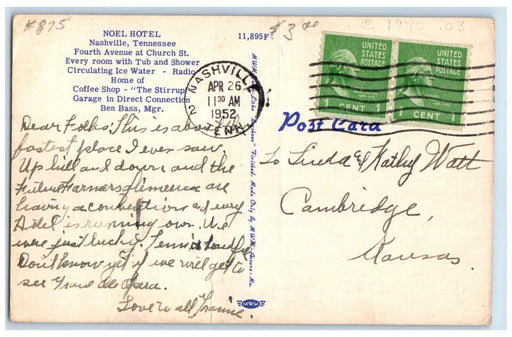 K875
$3.00
C 1940 .03
NOEL HOTEL
Nashville, Tennessee
Fourth Avenue at Church St.
Every room with Tub and Shower
Circulating Ice Water - Radio
Home of
Coffee Shop - "The Stirrup"
Garage in Direct Connection
Ben Bass, Mgr.
11,895F
NASHVILLE
2
APR 26
11 30 AM
1952
TENN.
UNITED
STATES
POSTAGE
1 CENT 1
UNITED
STATES
POSTAGE
1 CENT 1
Post Card
Dear Folks, This is about
fastest place I ever saw.
Up hill and down and the
Future Farmers of America are
having a convention & every
Hotel is running over. We
were just lucky.
Don't know yet if we will get to
see
Love to all
To Linda & Kathy Watt
Cambridge,
Kansas.
MWM